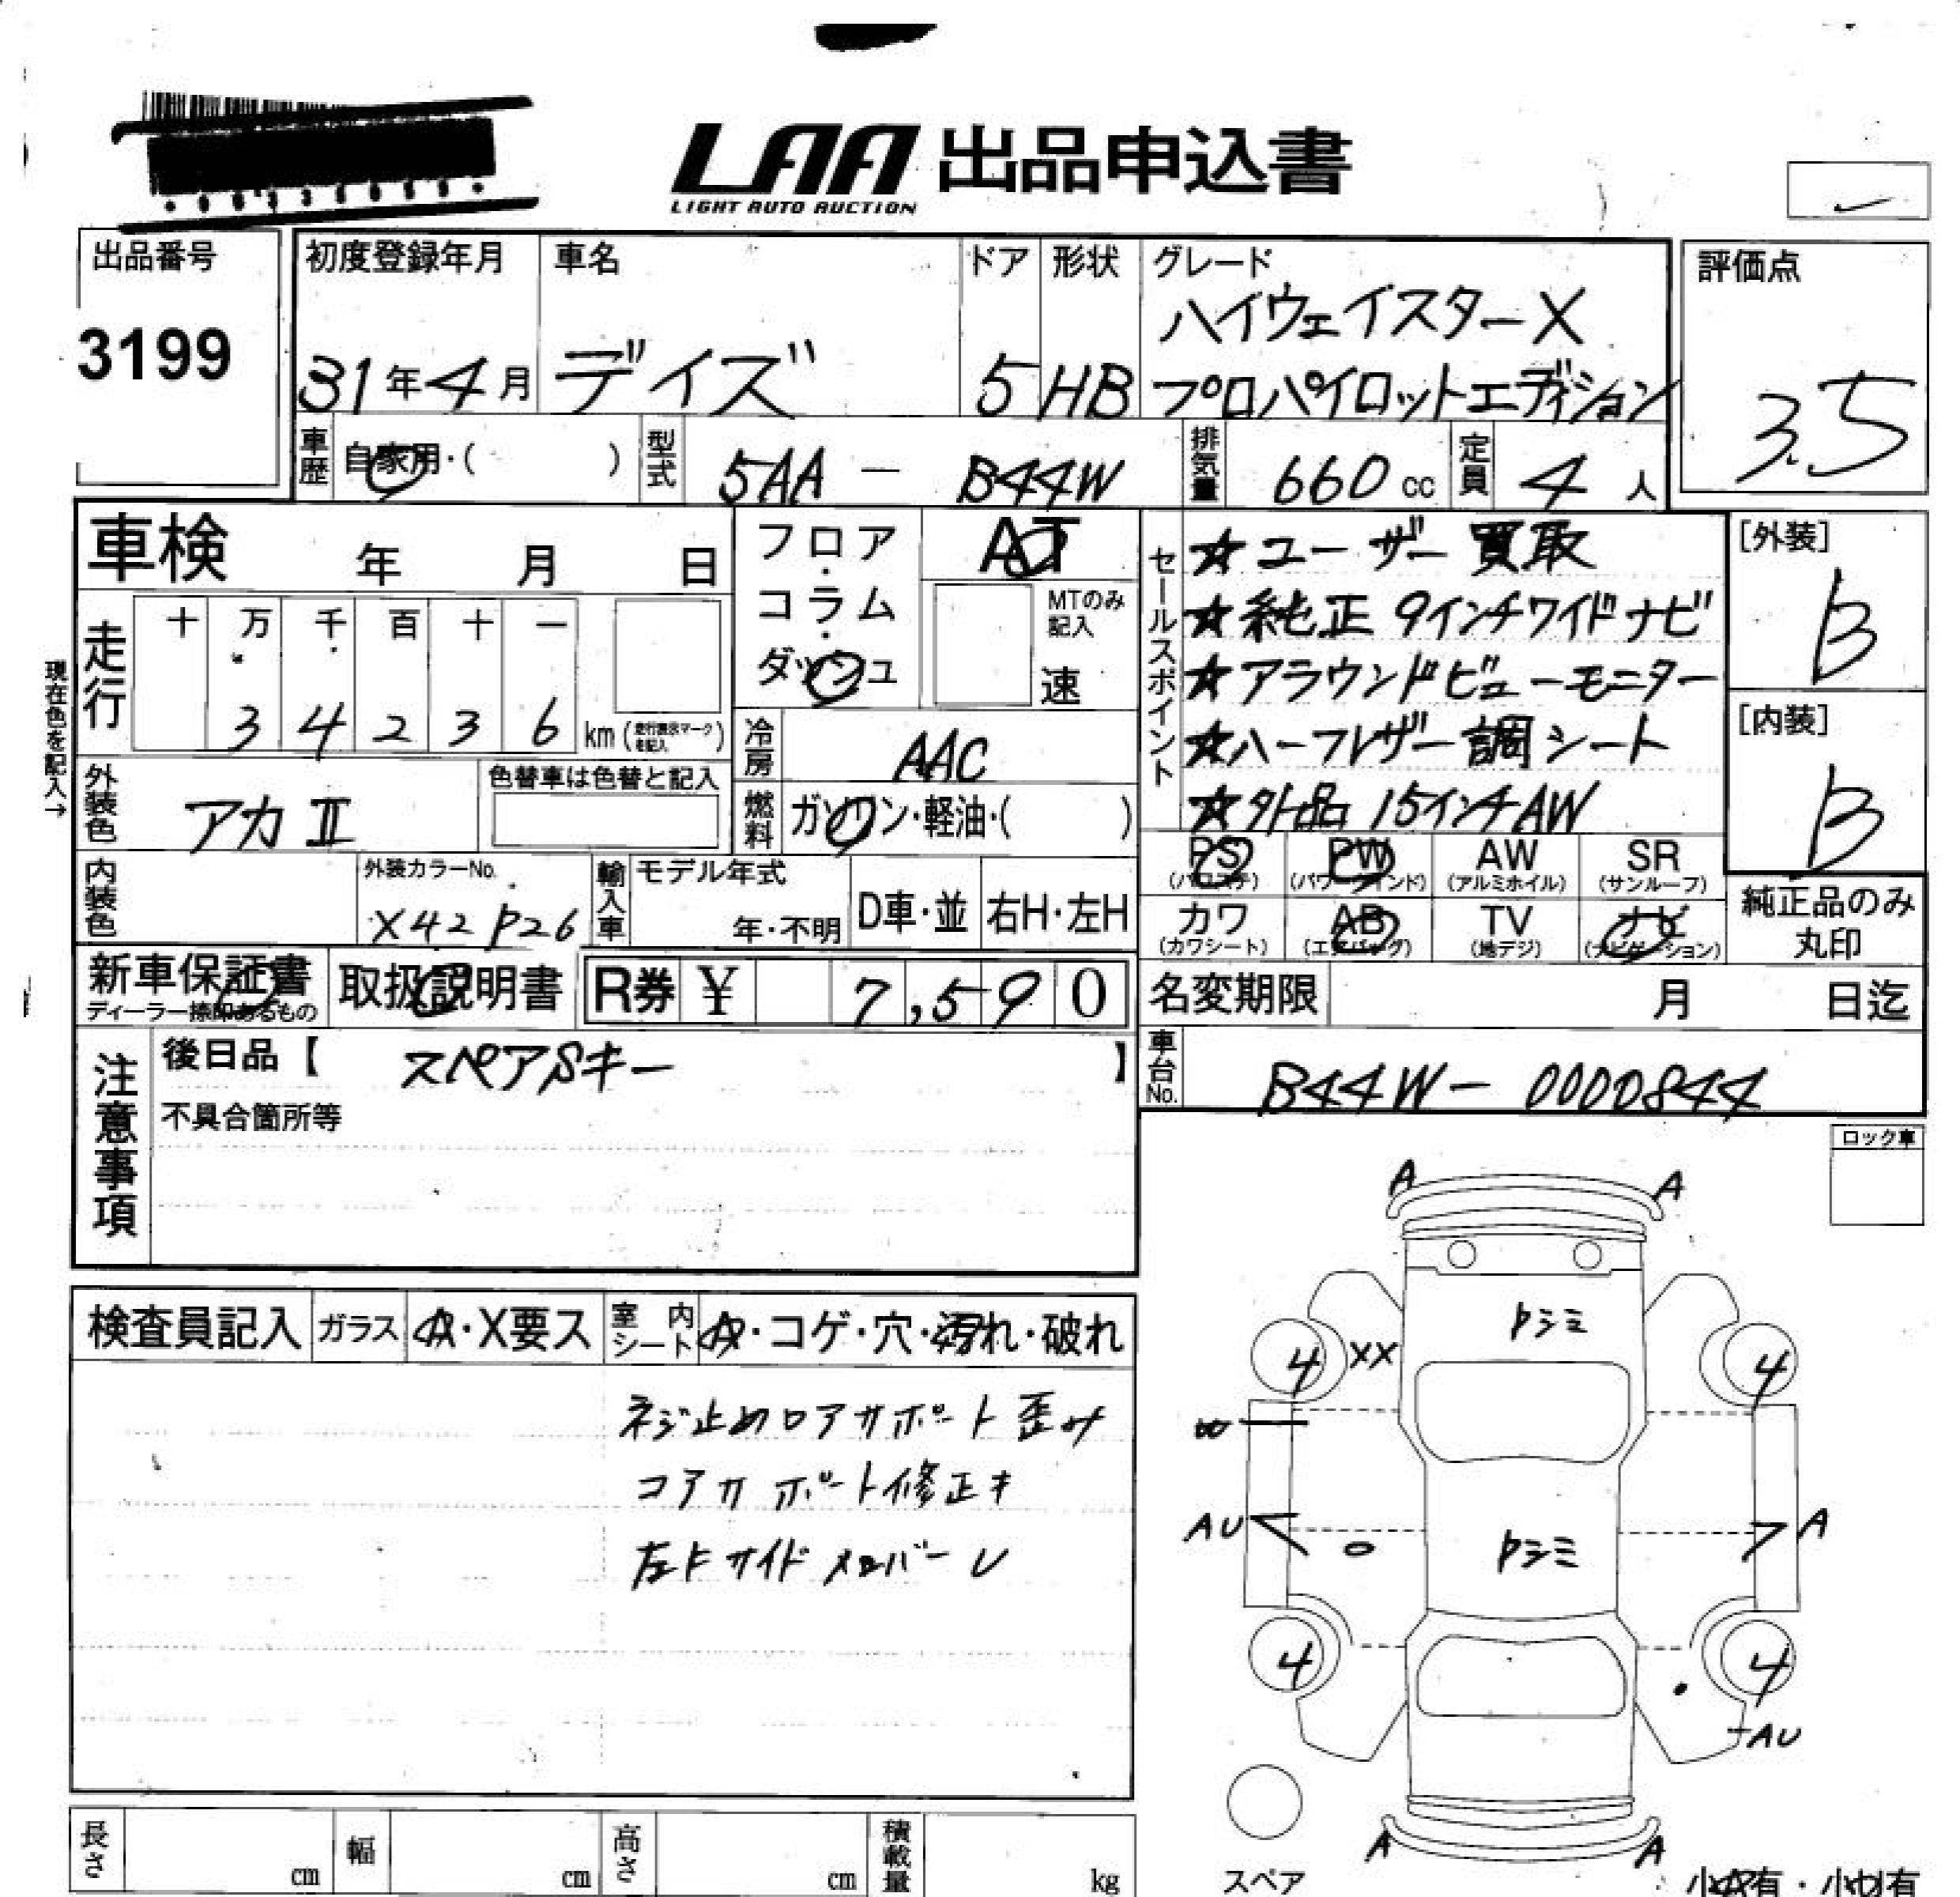 LAA 出品申込書
LIGHT AUTO AUCTION
出品番号
3199
初度登録年月
31年4月
車名
デイズ
ドア
5
形状
HB
グレード
ハイウェイスターX
プロパイロットエディション
評価点
3.5
車歴
自家用・( )
型式
5AA — B44W
排気量
660 cc
定員
4 人
車検 年 月 日
フロア・コラム・ダッシュ
AT
MTのみ記入
速
走行
十 万 千 百 十 一
3 4 2 3 6
km (走行表示マークを記入)
現在色を記入→
冷房
AAC
外装色
アカⅡ
色替車は色替と記入
燃料
ガソリン・軽油・( )
内装色
外装カラーNo.
X42 P26
輸入車
モデル年式
年・不明
D車・並
右H・左H
セールスポイント
☆ユーザー買取
☆純正9インチワイドナビ
☆アラウンドビューモニター
☆ハーフレザー調シート
☆外品15インチAW
[外装]
B
[内装]
B
PS (パワステ)
PW (パワーウインド)
AW (アルミホイル)
SR (サンルーフ)
カワ (カワシート)
AB (エアバッグ)
TV (地デジ)
ナビ (ナビゲーション)
純正品のみ
丸印
新車保証書
ディーラー捺印あるもの
取扱説明書
R券 ¥ 7,590
名変期限 月 日迄
注意事項
後日品【 スペアSキー 】
不具合箇所等
車台No.
B44W— 0000844
ロック車
検査員記入
ガラス
A・X要ス
室内シート
A・コゲ・穴・汚れ・破れ
ネジ止めロアサポート歪み
コアサポート修正キ
左Fサイドメンバー
A A
XX
4 4
AU
A
4 4
AU
A A
スペア
長さ cm
幅 cm
高さ cm
積載量 kg
小A有・小U有